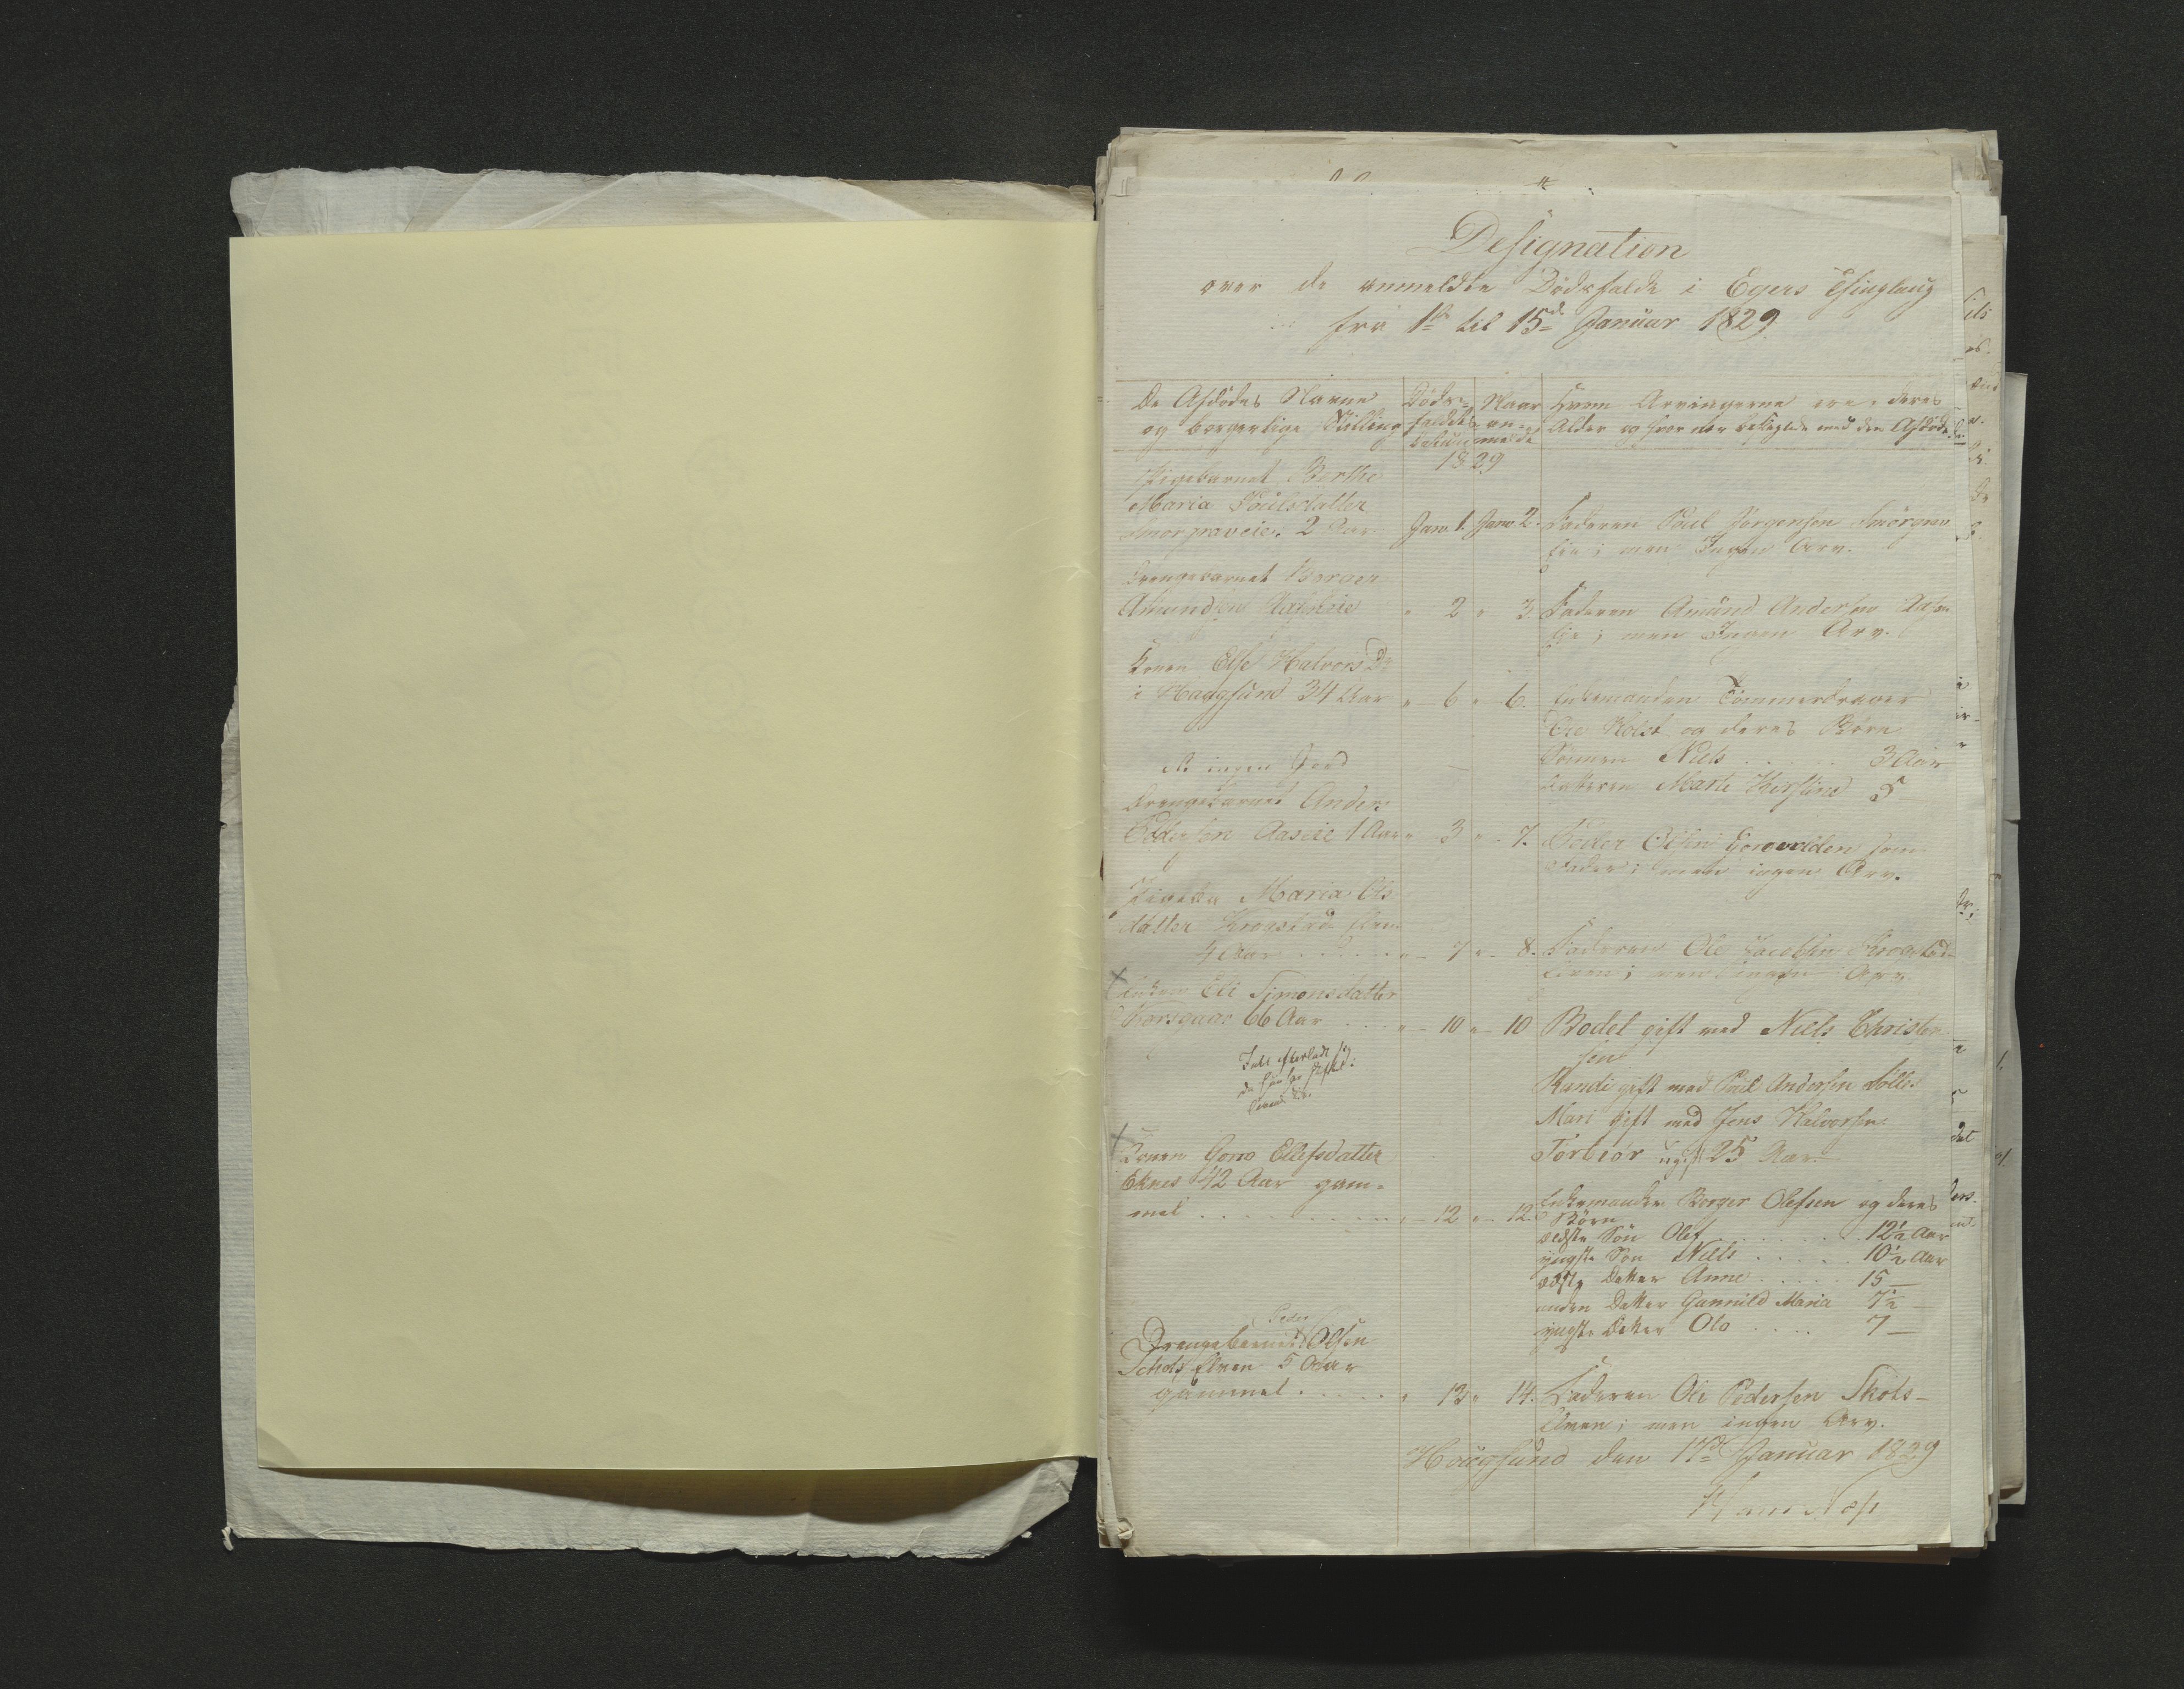 Designation
over de anmeldte Dødsfalde i Egers Thinglaug
fra 1ste til 15de Januar 1829
De Afdødes Navne
og borgerlige Stilling
Døds-
faldets
Datum
Naar
an-
meldt
Hvem Arvingerne ere, deres
Alder og hvor nær beslægtede med den Afdøde
1829
Pigebarnet Berthe
Maria Poulsdatter
Smørgraveie. 2 Aar.
Janr 1.
Janr 2.
Faderen Poul Jørgensen Smørgrav
eie; men Ingen Arv.
Drengebarnet Borger
Amundsen
" 2
" 3.
Faderen Amund Andersen
eie; men Ingen Arv.
Konen Else Halvors Dr
i Hougsund 34 Aar
" 6
" 6.
Enkemanden Tømmerbrager
Ole Holst og deres Børn
Sønnen Niels . . . . 3 Aar
Datteren Marte Kirstine 5
ingen Jord
Drengebarnet Anders
Pedersen Aaseie 1 Aar
" 3
" - 7.
Peder Olsen som
Fader; men ingen Arv.
Pigebn Maria Ols
datter Krogstad-elven
4 Aar . . . . .
" 7
" - 8.
Faderen Ole Jacobsen Krogstad-
elven; men ingen Arv
Enken Eli Simonsdatter
Korsgaar 66 Aar . . .
" - 10
" - 10
Bodel gift med Niels Christen
sen
Randi gift med Poul Andersen
Mari gift med Jens Halvorsen
Torbiør ugift 25 Aar
Konen Goro Ellefsdatter
Eknes 42 Aar gam-
mel . . . . . . . .
" - 12
" - 12
Enkemanden Borger Olefsen og deres
Børn
ældste Søn Olef . . . . . 12½ Aar
yngste Søn Niels . . . . 10½ Aar
ældste Datter Anne . . . . 15 —
anden Datter Gunnild Maria 7½ —
yngste Datter Olo . . . . 7 —
Peder
Drengebarnet Olsen
Schots Elven 5 Aar
gammel . . . . .
" 13
" 14.
Faderen Ole Pedersen Skots-
Elven; men ingen Arv.
Hougsund den 17de Januar 1829